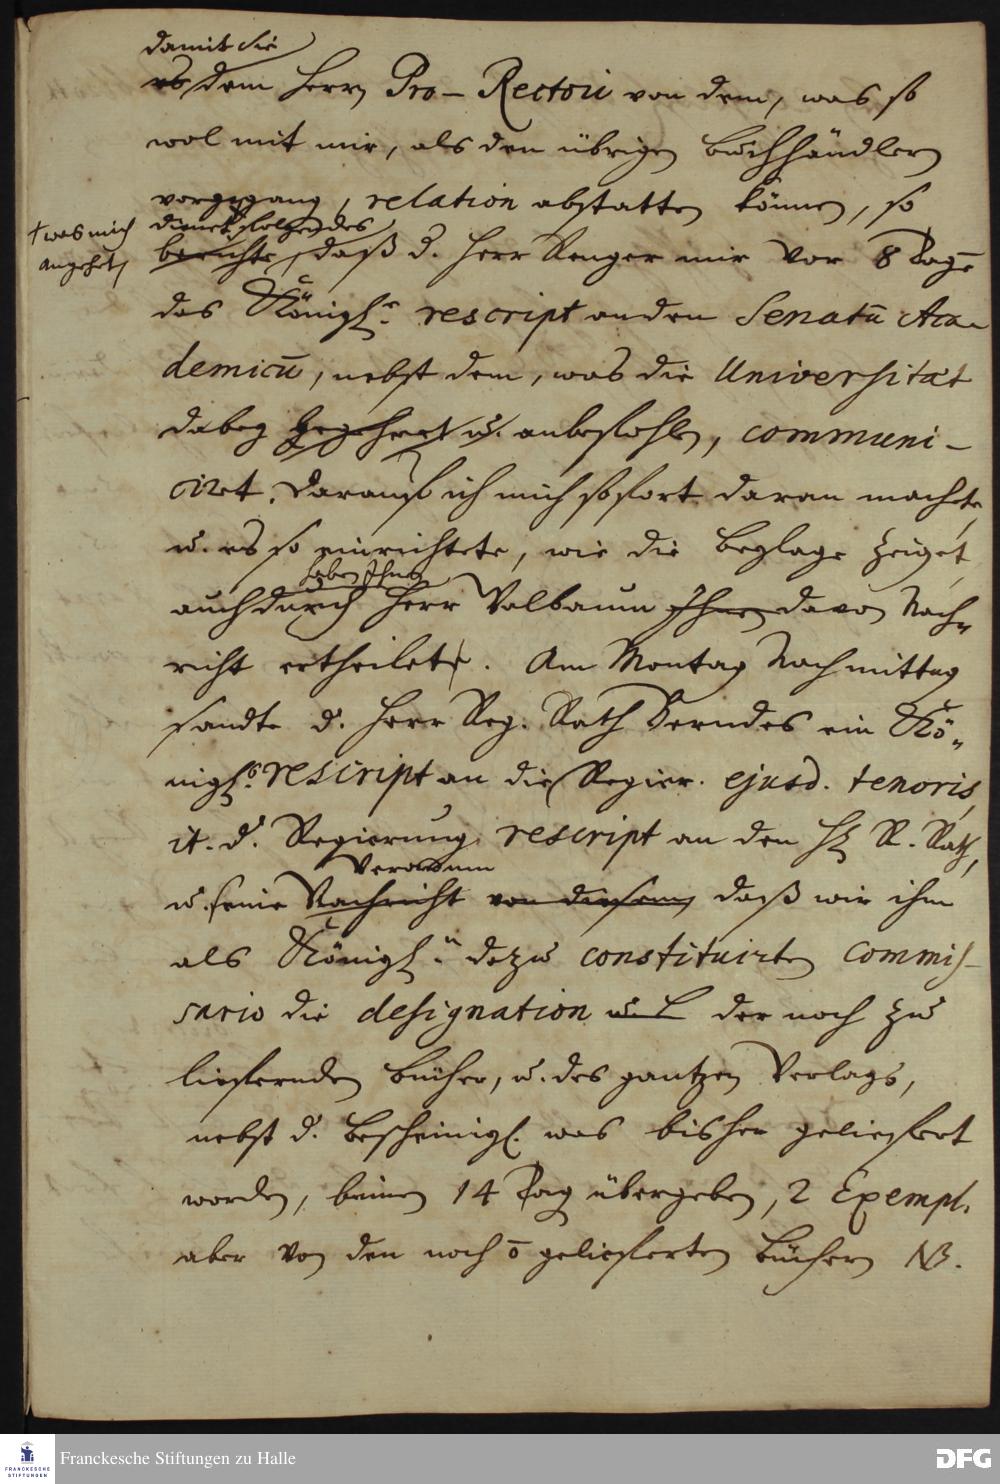 damit sie
es dem Herrn Pro-Rectori von dem, was so
wol mit mir, als den übrigen Buchhändlern
vorgegang, relation abstatten können, so
† was mich
angehet,
dienet folgendes
berichte, daß d. Herr Renger mir vor 8 Tagē
das Königl. rescript an den Senatū Aca-
demicū, nebst dem, was die Universität
dabey begehret u. anbefohlen, communi-
ciret. Darauf ich mich sofort daran machte,
u. es so einrichtete, wie die Beylage zeiget,
haben Ihnen
auch durch Herr Valbaum Ihnen davon Nach-
richt ertheilete. Am Montag Nachmittag
sandte d. Herr Reg. Rath Berndes ein Kö-
nigl. rescript an die Regier. ejusd. tenoris,
it. d. Regierung rescript an den H R. Rath,
Verordnun
u. seine Nachricht von diesem, daß wir ihm
als Königl. dazu constituirten Commis-
sario die designation der noch zu
liefernden Bücher, u. des gantzen Verlags,
nebst d. Bescheinigl. was bisher geliefert
worden, binnen 14 Tag übergeben, 2 Exempl.
aber von den noch ō gelieferten Büchern NB.
Franckesche Stiftungen zu Halle
FRANCKESCHE
STIFTUNGEN
DFG